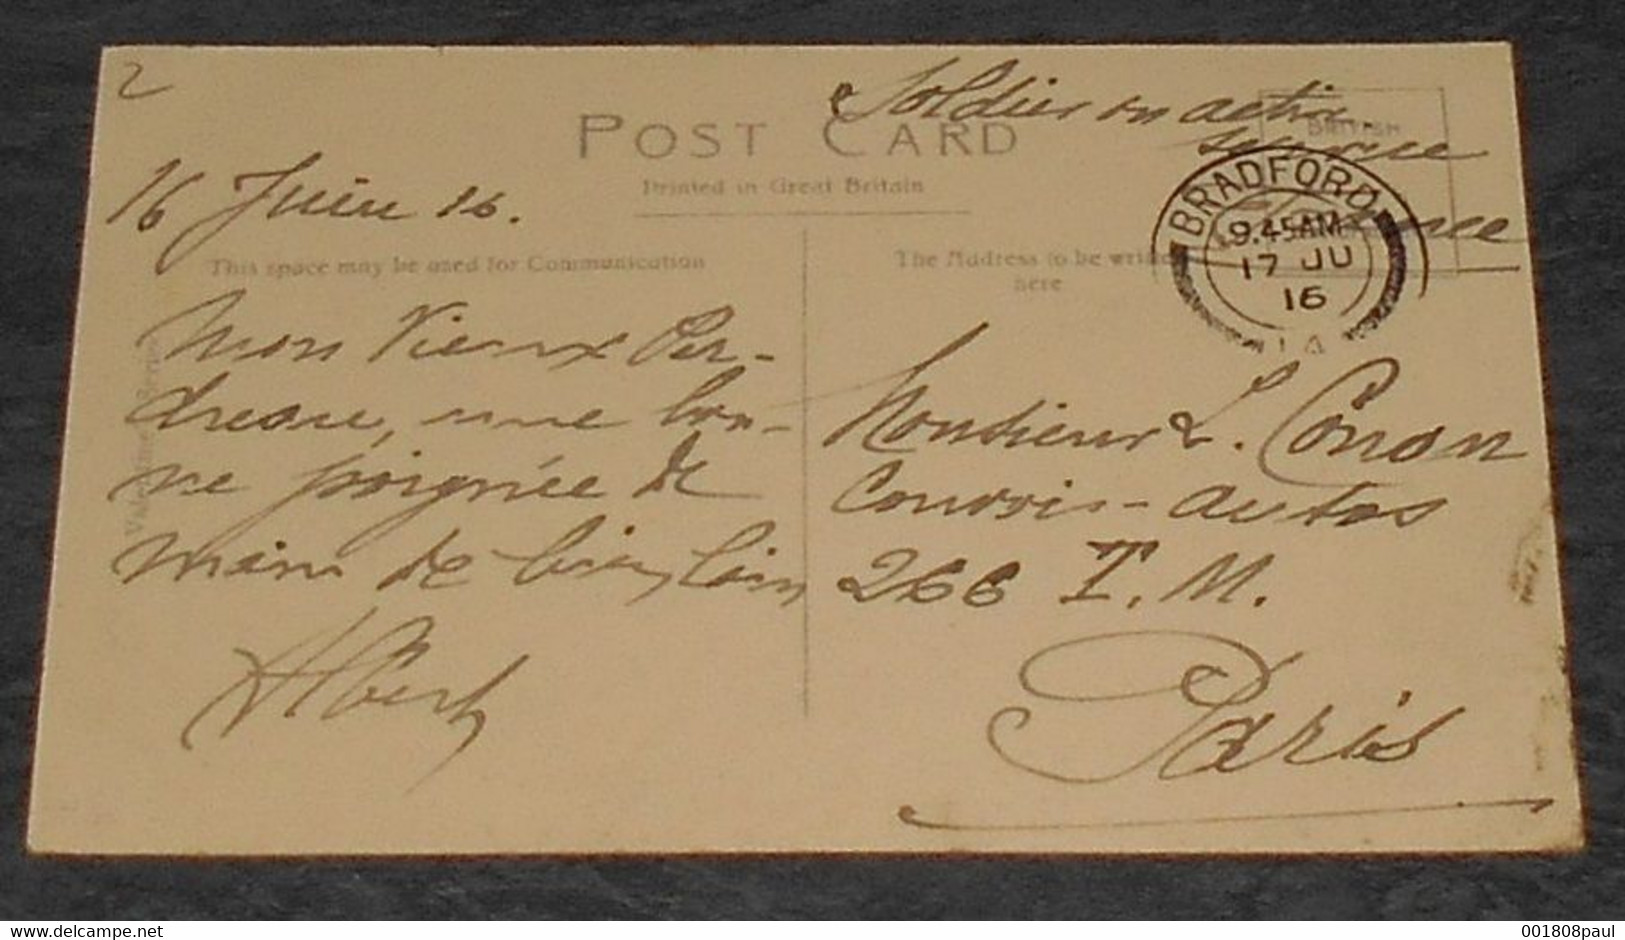 2
Soldier on active
service
POST CARD
BRITISH
Printed in Great Britain
16 Juin 16.
BRADFORD
9.45AM
17 JU
16
14
This space may be used for Communication
The Address to be written
here
Valentine's Series
Mon Vieux Per-
dreau, une bon-
ne poignée de
main de
Albert
Monsieur L. Conan
Convois-autos
266 T. M.
Paris
delcampe.net
001808paul